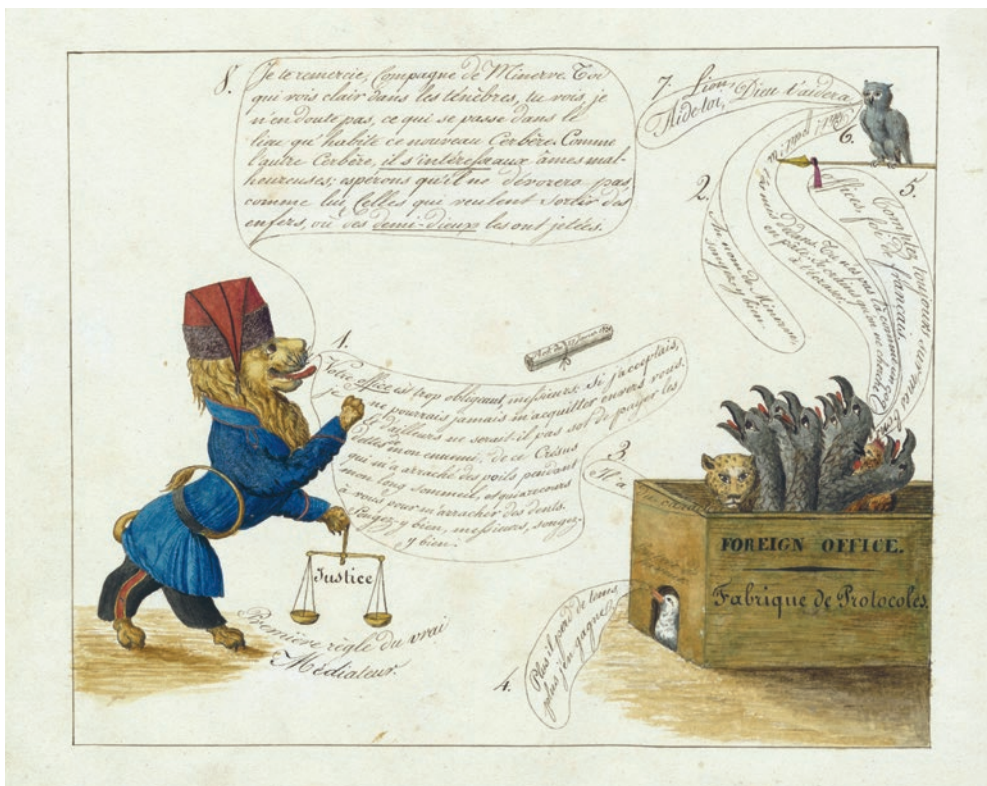 8.
Je te remercie, Compagne de Minerve. Toi
qui vois clair dans les ténèbres, tu vois, je
n'en doute pas, ce qui se passe dans le
lieu qu'habite ce nouveau Cerbère. Comme
l'autre Cerbère, il s'intéresse aux âmes mal-
heureuses; espérons qu'il ne dévorera pas,
comme lui, Celles qui veulent sortir des
enfers, où des demi-dieux les ont jetées.
7. Lion,
Aide toi, Dieu t'aidera
6.
5.
Comptez toujours sur mes bons
offices, foi de français.
2.
Au nom de Minerve,
songez-y bien.
1.
Votre office est trop obligeant, messieurs. Si j'acceptais,
je ne pourrais jamais m'acquitter envers vous.
Et d'ailleurs ne serait-il pas sot de payer les
dettes de mon ennemi, de ce Crésus
qui m'a arraché des poils pendant
mon long sommeil, et qui a recours
à vous pour m'arracher des dents.
Songez-y bien, messieurs, songez-
y bien.
3
Il a
du caractère
Justice
Première règle du vrai
Médiateur.
4.
Plus il perd de tems,
plus j'en gagne.
FOREIGN OFFICE.
Fabrique de Protocoles.